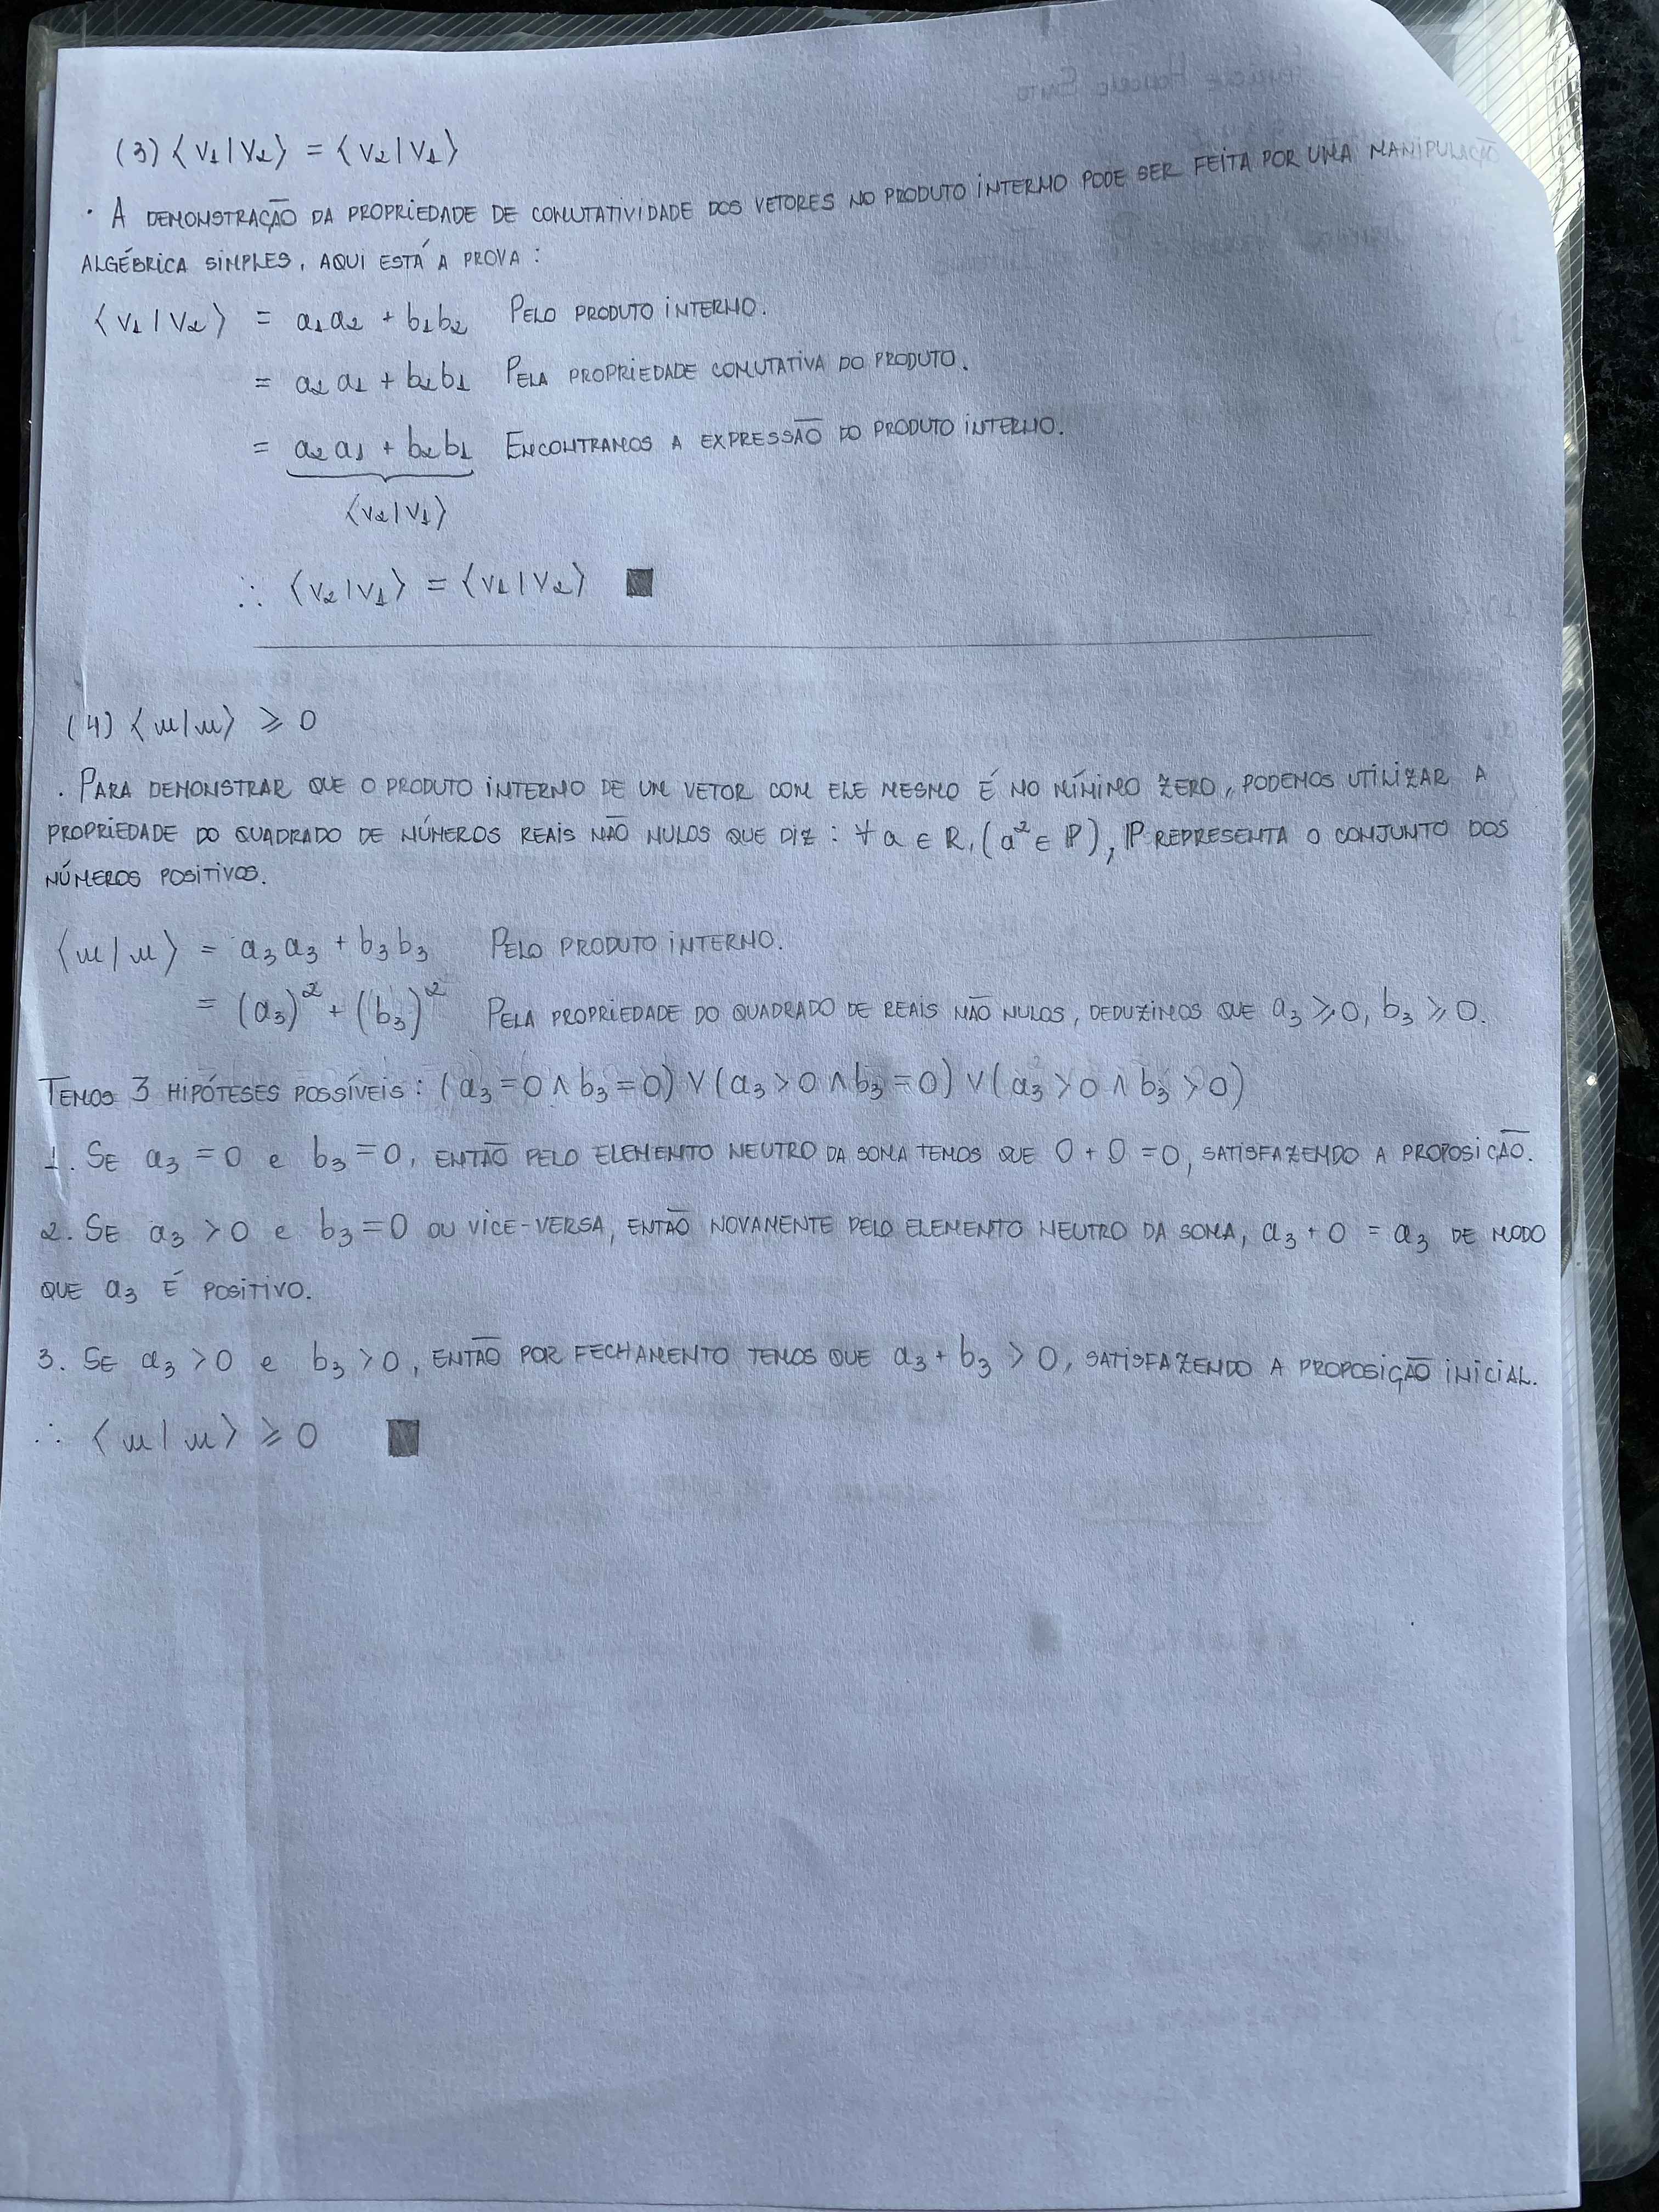 (3) ⟨v₁|v₂⟩ = ⟨v₂|v₁⟩
· A DEMONSTRAÇÃO DA PROPRIEDADE DE COMUTATIVIDADE DOS VETORES NO PRODUTO INTERNO PODE SER FEITA POR UMA MANIPULAÇÃO
ALGÉBRICA SIMPLES, AQUI ESTÁ A PROVA:
⟨v₁|v₂⟩ = a₁a₂ + b₁b₂ PELO PRODUTO INTERNO.
= a₂a₁ + b₂b₁ PELA PROPRIEDADE COMUTATIVA DO PRODUTO.
= a₂a₁ + b₂b₁ ENCONTRAMOS A EXPRESSÃO DO PRODUTO INTERNO.
⟨v₂|v₁⟩
∴ ⟨v₂|v₁⟩ = ⟨v₁|v₂⟩ ■
(4) ⟨u|u⟩ ⩾ 0
. PARA DEMONSTRAR QUE O PRODUTO INTERNO DE UM VETOR COM ELE MESMO É NO MÍNIMO ZERO, PODEMOS UTILIZAR A
PROPRIEDADE DO QUADRADO DE NÚMEROS REAIS NÃO NULOS QUE DIZ: ∀a ∈ R, (a² ∈ ℙ), ℙ REPRESENTA O CONJUNTO DOS
NÚMEROS POSITIVOS.
⟨u|u⟩ = a₃a₃ + b₃b₃ PELO PRODUTO INTERNO.
= (a₃)² + (b₃)² PELA PROPRIEDADE DO QUADRADO DE REAIS NÃO NULOS, DEDUZIMOS QUE a₃ ⩾ 0, b₃ ⩾ 0.
TEMOS 3 HIPÓTESES POSSÍVEIS: (a₃ = 0 ∧ b₃ = 0) ∨ (a₃ > 0 ∧ b₃ = 0) ∨ (a₃ > 0 ∧ b₃ > 0)
1. SE a₃ = 0 e b₃ = 0, ENTÃO PELO ELEMENTO NEUTRO DA SOMA TEMOS QUE 0 + 0 = 0, SATISFAZENDO A PROPOSIÇÃO.
2. SE a₃ > 0 e b₃ = 0 OU VICE-VERSA, ENTÃO NOVAMENTE PELO ELEMENTO NEUTRO DA SOMA, a₃ + 0 = a₃ DE MODO
QUE a₃ É POSITIVO.
3. SE a₃ > 0 e b₃ > 0, ENTÃO POR FECHAMENTO TEMOS QUE a₃ + b₃ > 0, SATISFAZENDO A PROPOSIÇÃO INICIAL.
∴ ⟨u|u⟩ ⩾ 0 ■